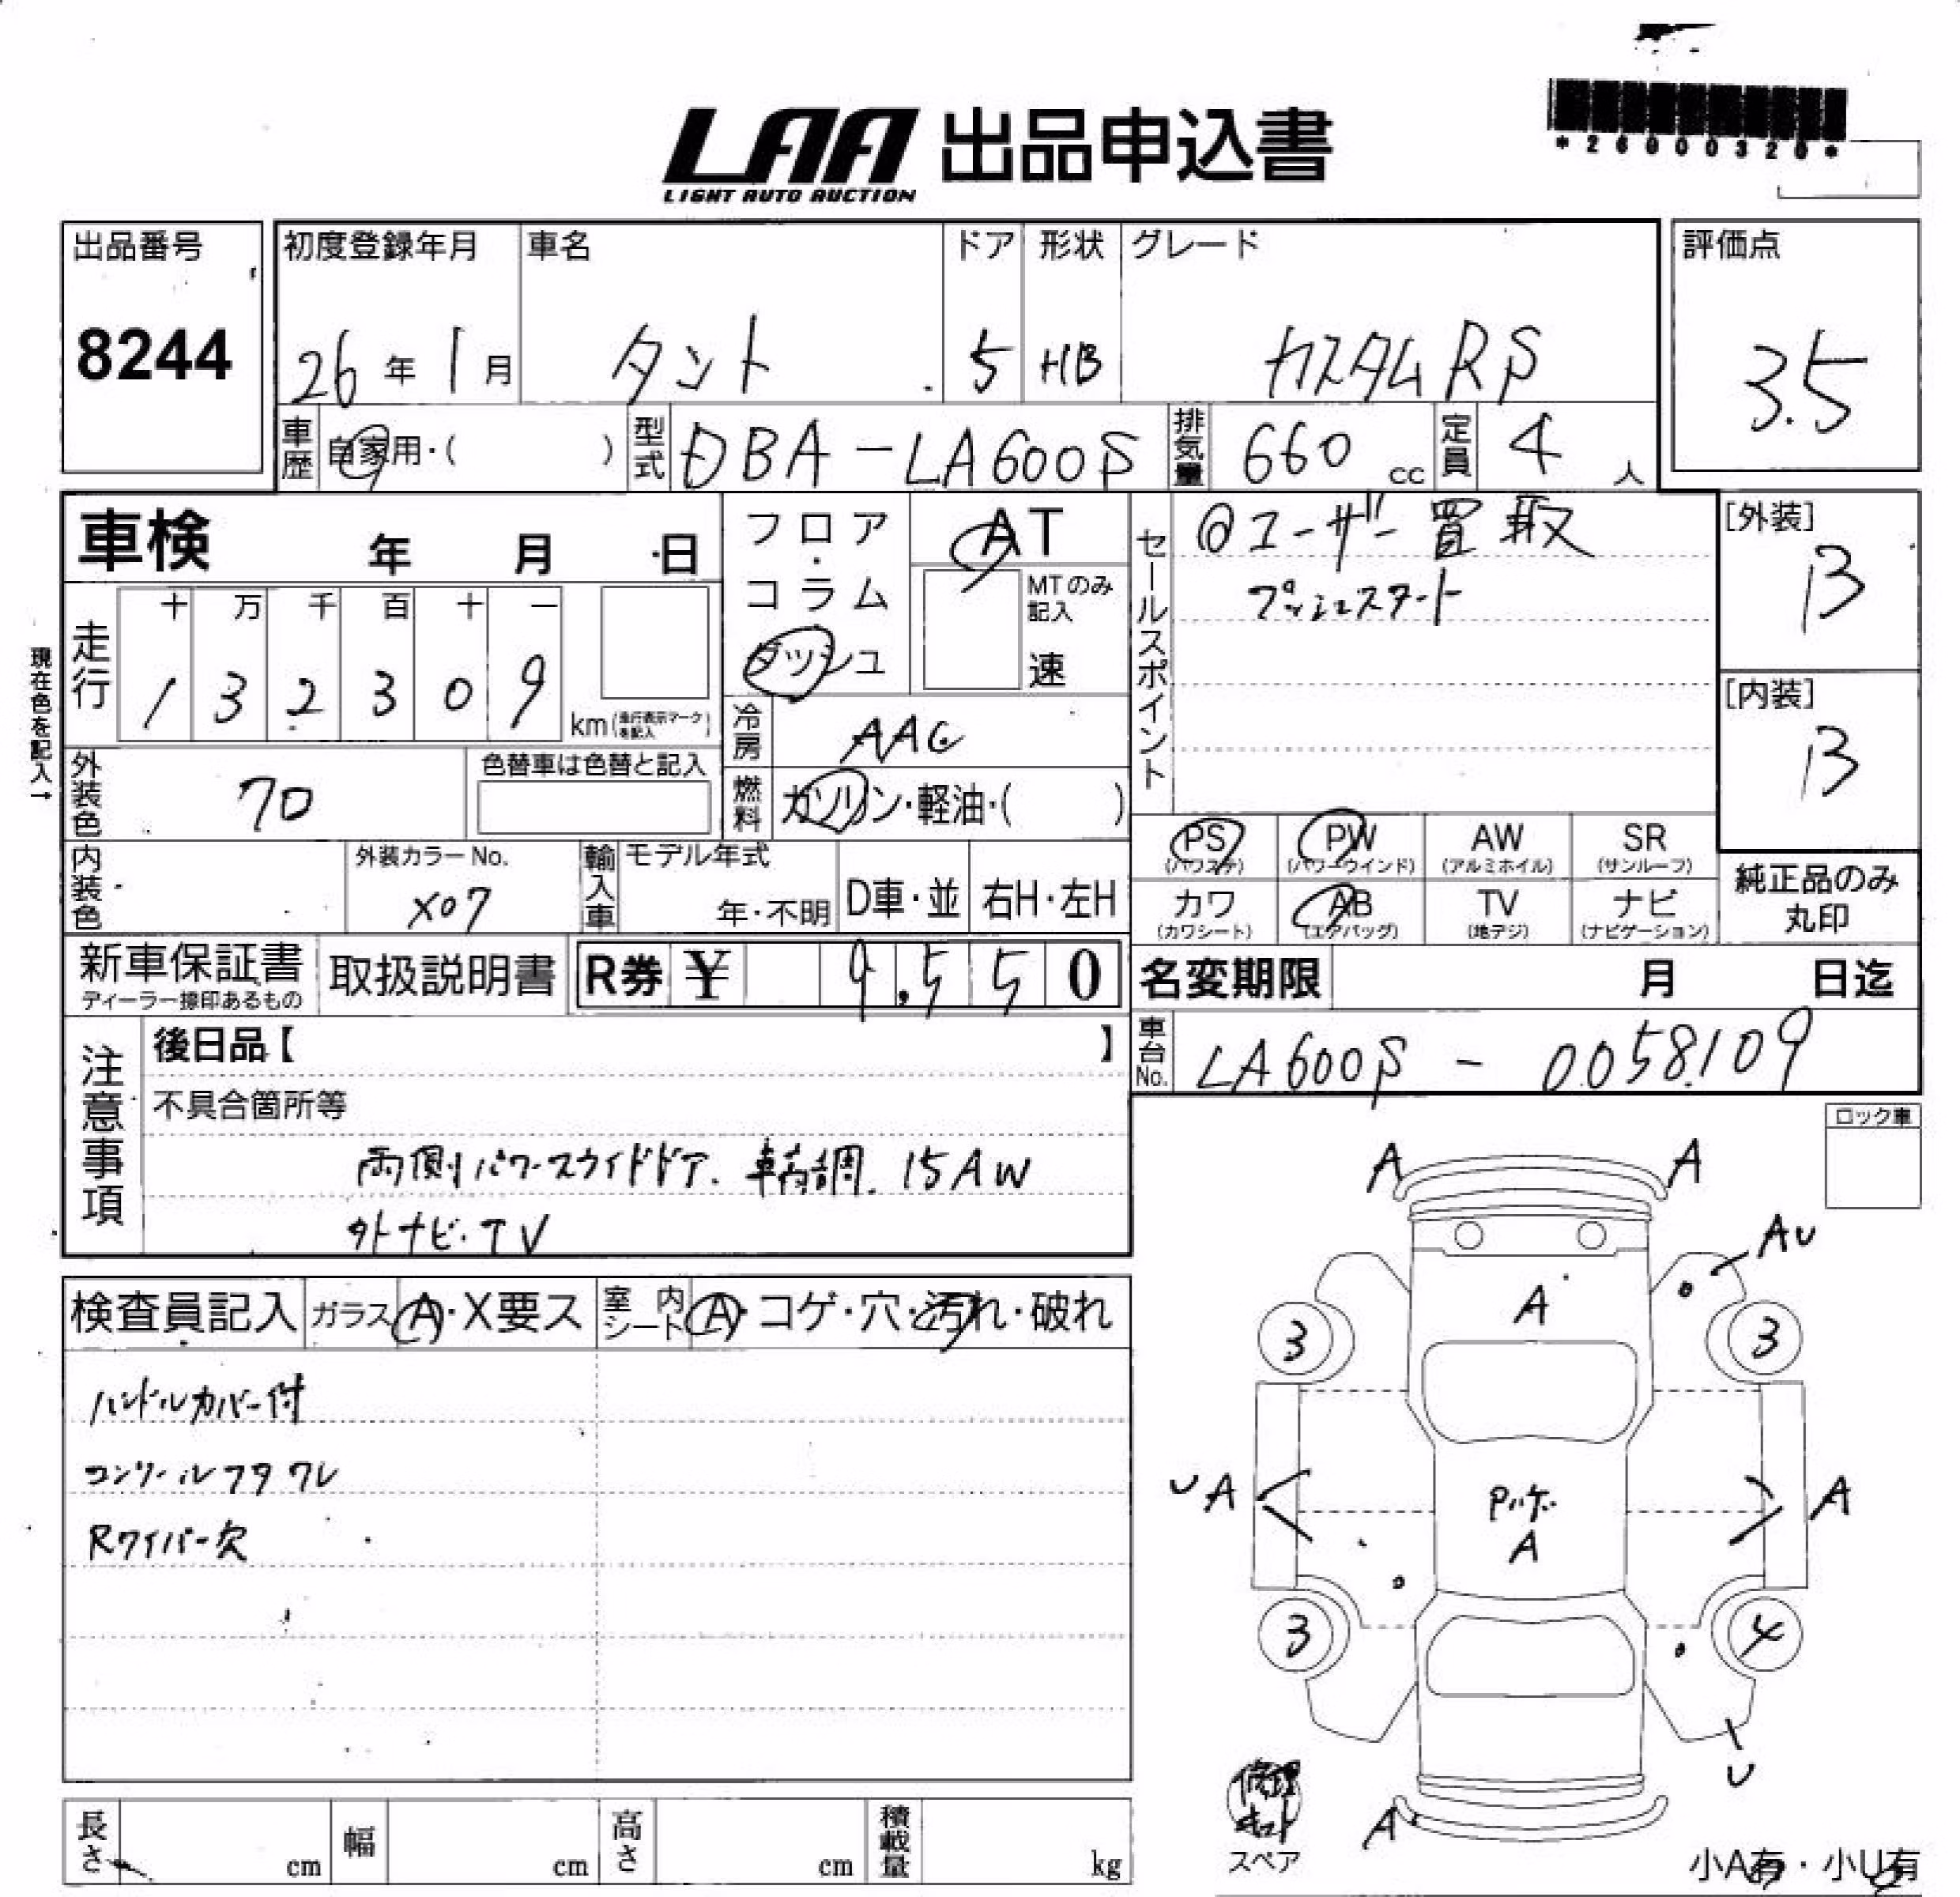 *26000320*
LAA 出品申込書
LIGHT AUTO AUCTION
出品番号 8244
初度登録年月 26年1月
車名 タント
ドア 5
形状 HB
グレード カスタムRS
評価点 3.5
車歴 自家用・( )
型式 DBA-LA600S
排気量 660 cc
定員 4 人
車検 年 月 日
フロア・コラム・ダッシュ
AT
MTのみ記入 速
セールスポイント
@ユーザー買取
プッシュスタート
[外装] B
[内装] B
現在色を記入→
走行 十 万 千 百 十 一
1 3 2 3 0 9 km (走行表示マークを記入)
冷房 AAC
燃料 ガソリン・軽油・( )
外装色 70
色替車は色替と記入
内装色
外装カラーNo. X07
輸入車 モデル年式 年・不明 D車・並 右H・左H
PS (パワステ) PW (パワーウインド) AW (アルミホイル) SR (サンルーフ)
カワ (カワシート) AB (エアバッグ) TV (地デジ) ナビ (ナビゲーション)
純正品のみ丸印
新車保証書 ディーラー捺印あるもの
取扱説明書
R券 ¥ 9,550
名変期限 月 日迄
車台No. LA600S - 0058109
注意事項
後日品【 】
不具合箇所等
両側パワースライドドア. 車輪調. 15AW
外ナビ・TV
ロック車
検査員記入 ガラス A・X要ス 室内シート A・コゲ・穴・汚れ・破れ
ハンドルカバー付
コンソールフタワレ
Rワイパー欠
A A
AU
A
3 3
UA A
A
3 4
U
A
修理キット
スペア
小A有・小U有
長さ cm 幅 cm 高さ cm 積載量 kg